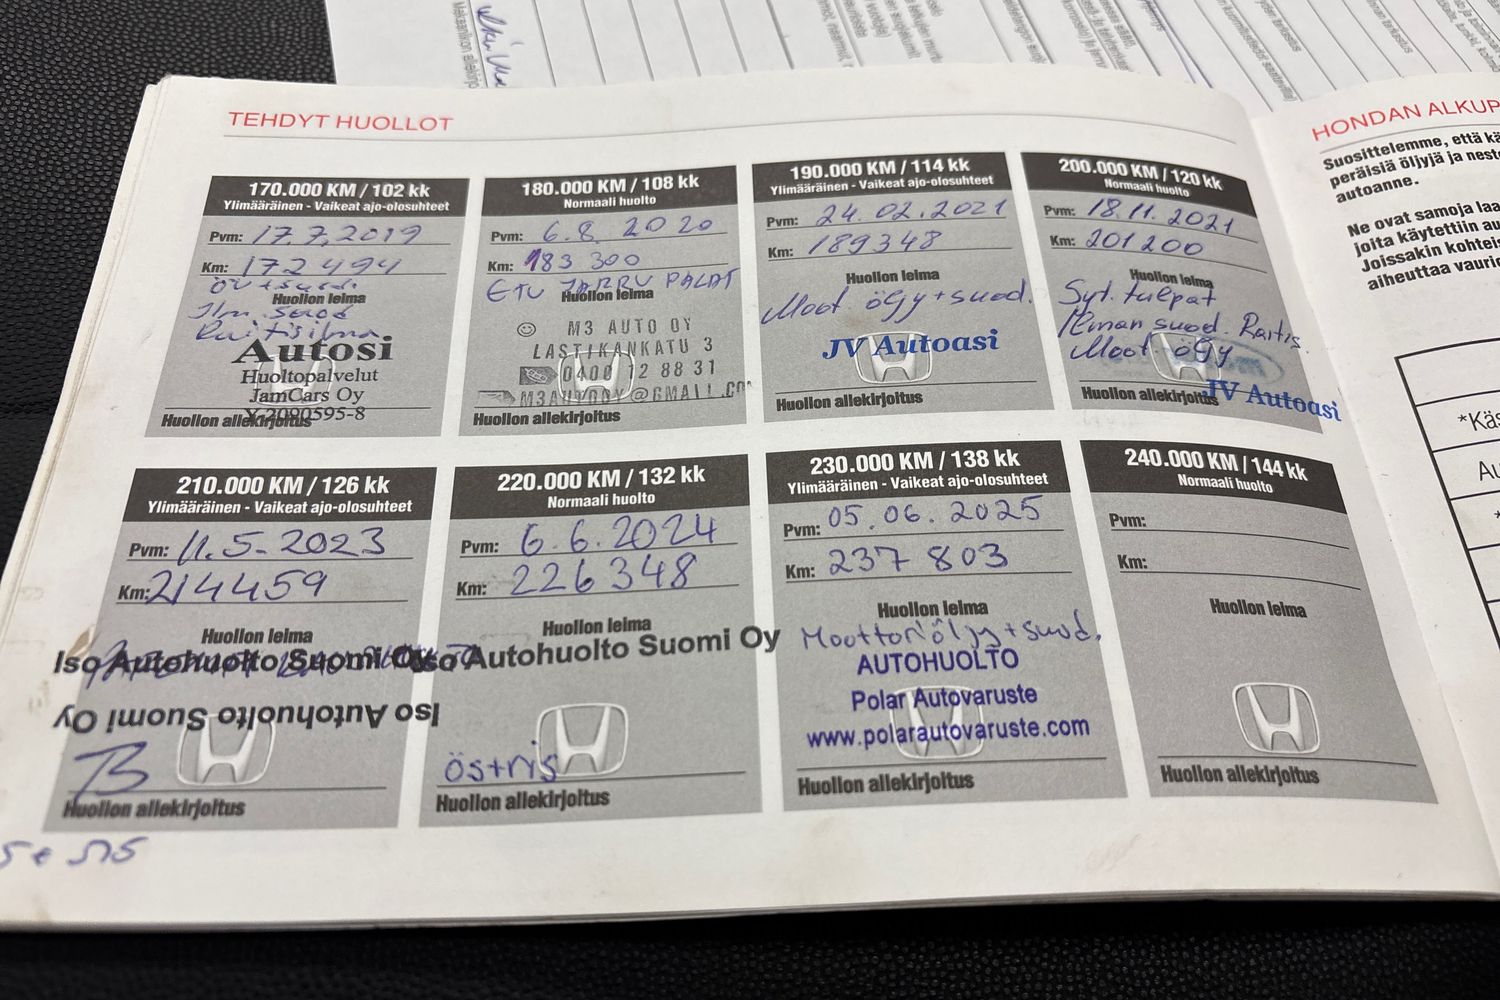 TEHDYT HUOLLOT
170.000 KM / 102 kk
Ylimääräinen - Vaikeat ajo-olosuhteet
Pvm: 17.7.2019
Km: 172494
Huollon leima
Ilm suod
Raitisilma
Autosi
Huoltopalvelut
JamCars Oy
Y-2090595-8
Huollon allekirjoitus
180.000 KM / 108 kk
Normaali huolto
Pvm: 6.8.2020
Km: 183 300
ETU JARRU PALAT
Huollon leima
M3 AUTO OY
LASTIKANKATU 3
0400 12 88 31
Huollon allekirjoitus
190.000 KM / 114 kk
Ylimääräinen - Vaikeat ajo-olosuhteet
Pvm: 24.02.2021
Km: 189348
Huollon leima
Moot. öljy + suod.
JV Autoasi
Huollon allekirjoitus
200.000 KM / 120 kk
Normaali huolto
Pvm: 18.11.2021
Km: 201200
Huollon leima
Syt. tulpat
Ilman suod. Raitis.
Moot. öljy
JV Autoasi
Huollon allekirjoitus
210.000 KM / 126 kk
Ylimääräinen - Vaikeat ajo-olosuhteet
Pvm: 11.5.2023
Km: 214459
Huollon leima
Iso Autohuolto Suomi Oy
Iso Autohuolto Suomi Oy
Huollon allekirjoitus
220.000 KM / 132 kk
Normaali huolto
Pvm: 6.6.2024
Km: 226348
Huollon leima
Iso Autohuolto Suomi Oy
östris
Huollon allekirjoitus
230.000 KM / 138 kk
Ylimääräinen - Vaikeat ajo-olosuhteet
Pvm: 05.06.2025
Km: 237 803
Huollon leima
Moottoriöljy + suod.
AUTOHUOLTO
Polar Autovaruste
www.polarautovaruste.com
Huollon allekirjoitus
240.000 KM / 144 kk
Normaali huolto
Pvm:
Km:
Huollon leima
Huollon allekirjoitus
HONDAN ALKUP
Suosittelemme, että kä
peräisiä öljyjä ja nest
autoanne.
Ne ovat samoja laa
joita käytettiin au
Joissakin kohteis
aiheuttaa vaurio
*Käs
Au